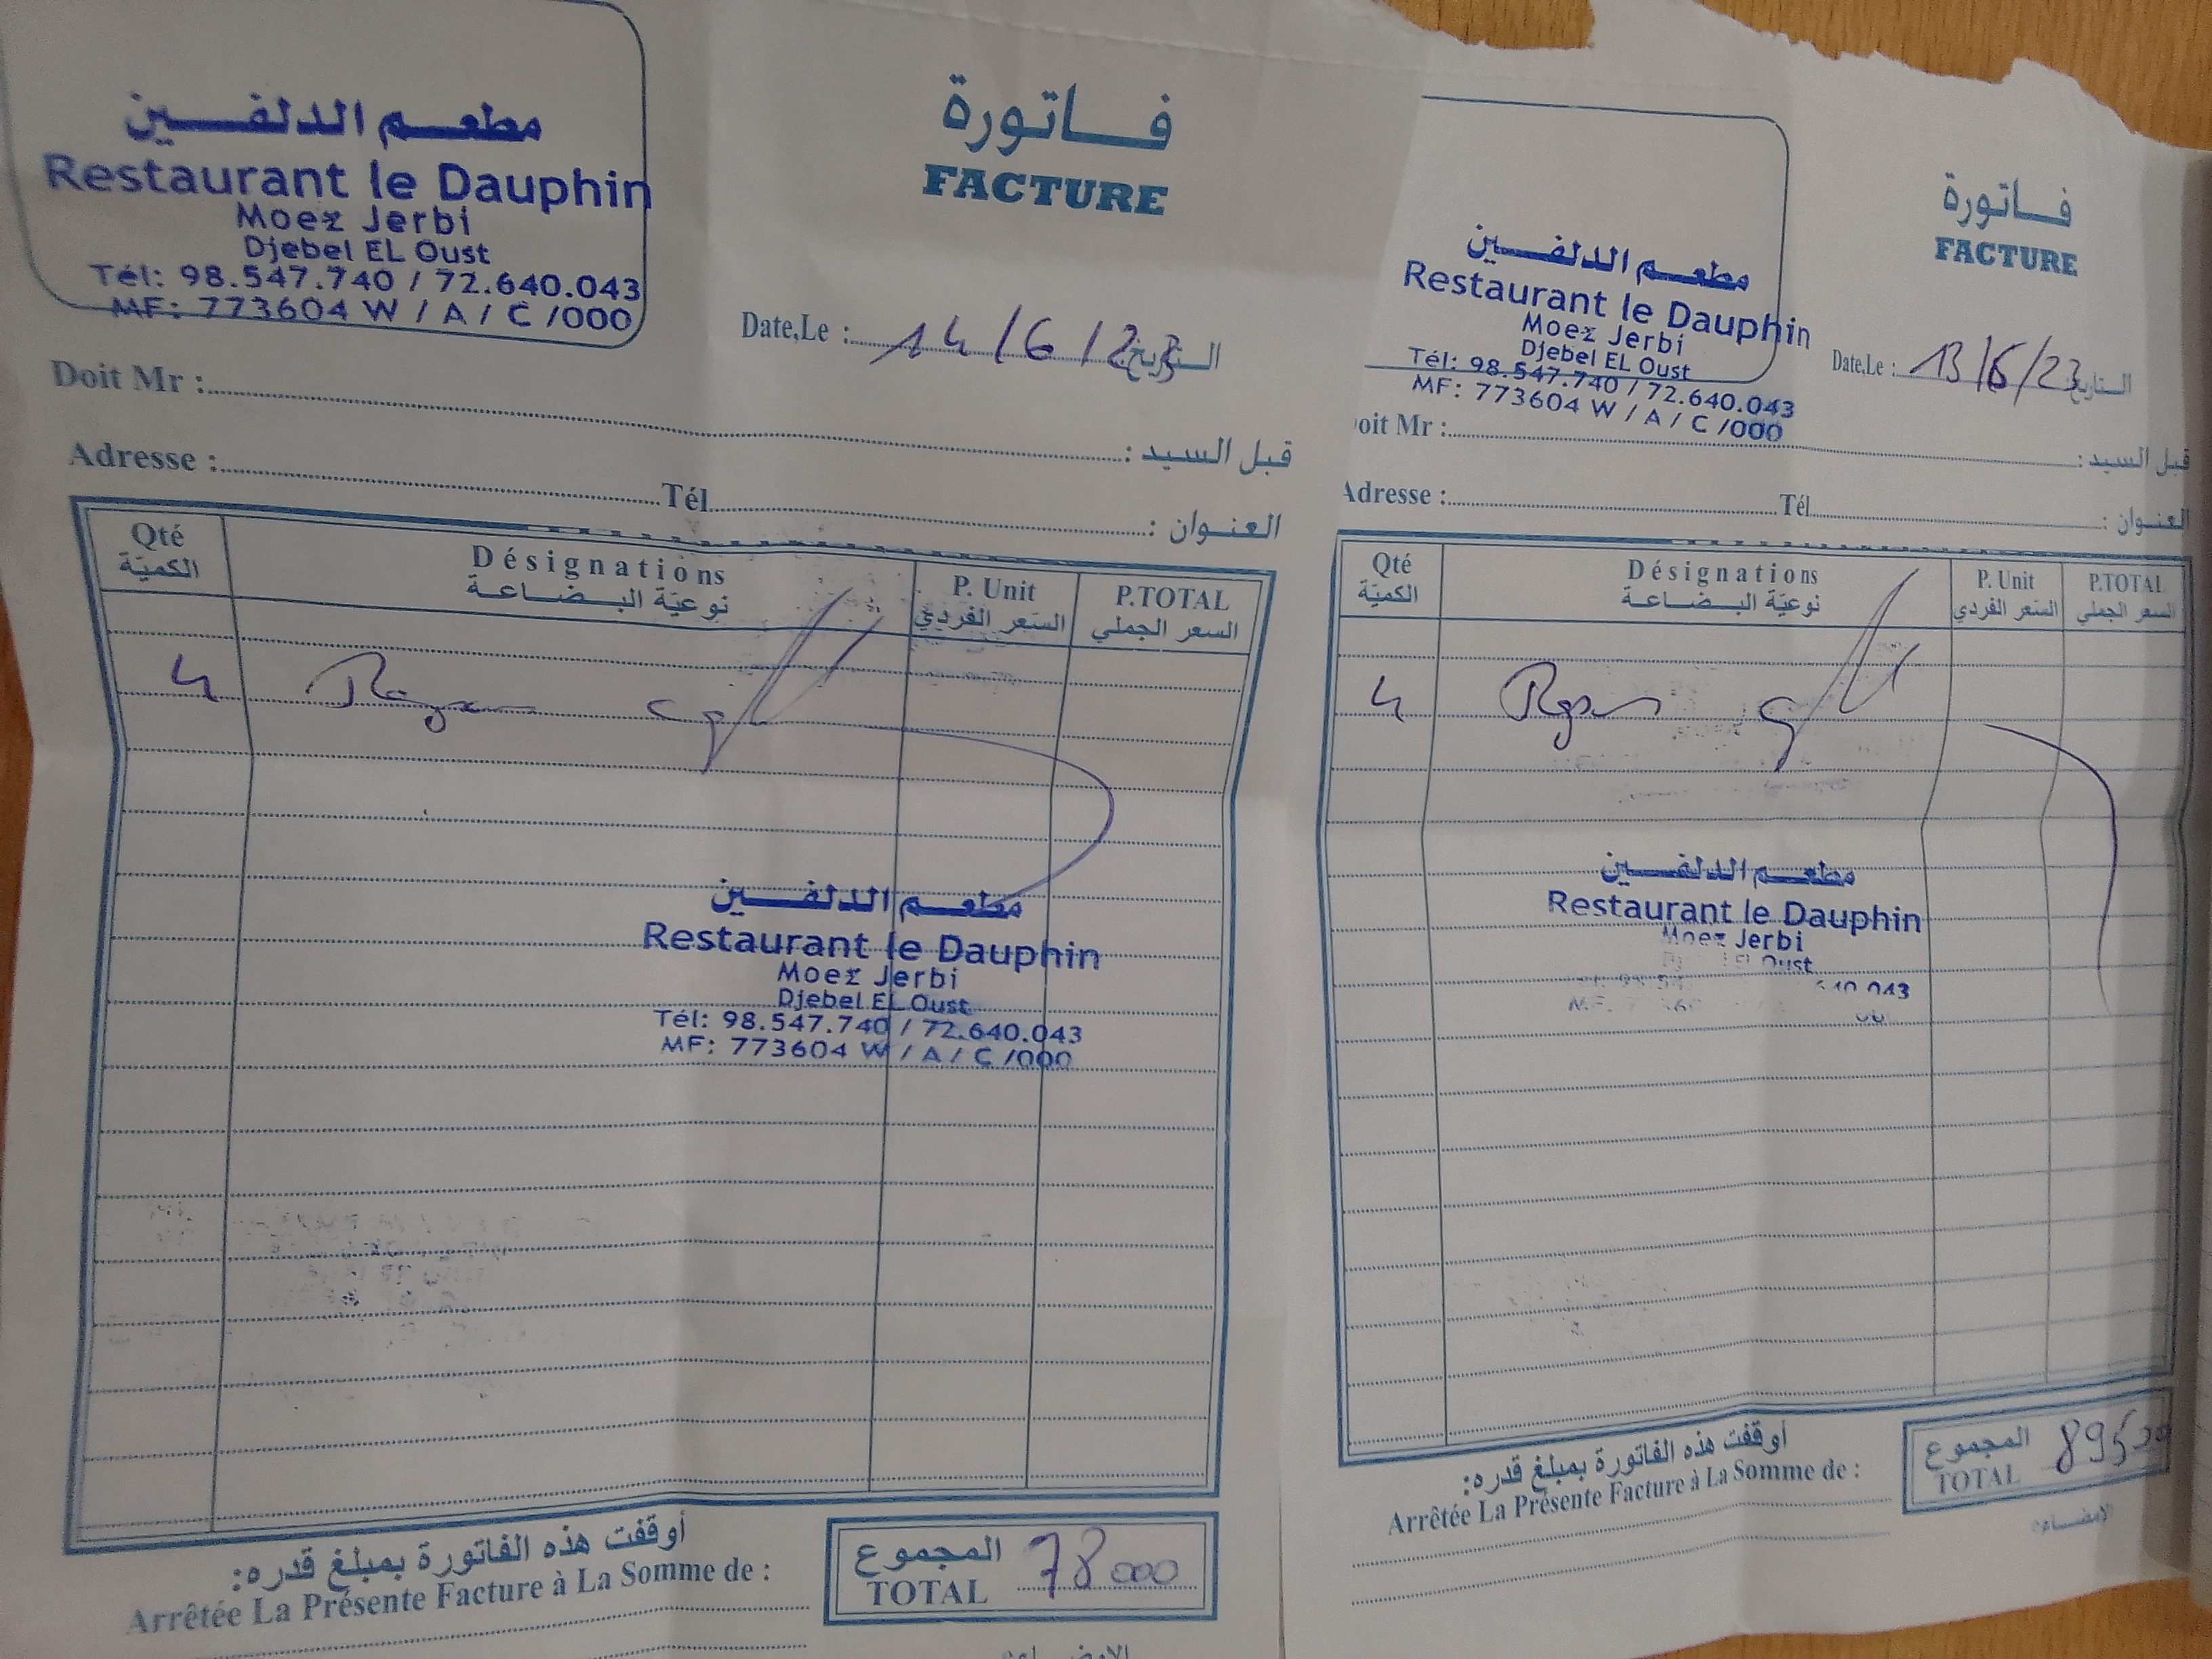 مطعم الدلفين
Restaurant le Dauphin
Moez Jerbi
Djebel EL Oust
Tél: 98.547.740 / 72.640.043
MF: 773604 W / A / C /000
فاتورة
FACTURE
Date,Le : 14/6/23 التاريخ
Doit Mr : قبل السيد :
Adresse : Tél العنوان :
Qté Désignations P. Unit P.TOTAL
الكميّة نوعيّة البضاعة السّعر الفردي السعر الجملي
4
مطعم الدلفين
Restaurant le Dauphin
Moez Jerbi
Djebel EL Oust
Tél: 98.547.740 / 72.640.043
MF: 773604 W / A / C /000
أوقفت هذه الفاتورة بمبلغ قدره:
Arrêtée La Présente Facture à La Somme de :
المجموع
TOTAL 78000
الامضاء
مطعم الدلفين
Restaurant le Dauphin
Moez Jerbi
Djebel EL Oust
Tél: 98.547.740 / 72.640.043
MF: 773604 W / A / C /000
فاتورة
FACTURE
Date,Le : 13/6/23 التاريخ
oit Mr : قبل السيد :
Adresse : Tél العنوان :
Qté Désignations P. Unit P.TOTAL
الكميّة نوعيّة البضاعة السّعر الفردي السعر الجملي
4
مطعم الدلفين
Restaurant le Dauphin
Moez Jerbi
El Oust
043
أوقفت هذه الفاتورة بمبلغ قدره:
Arrêtée La Présente Facture à La Somme de :
المجموع
TOTAL 89500
الامضاء